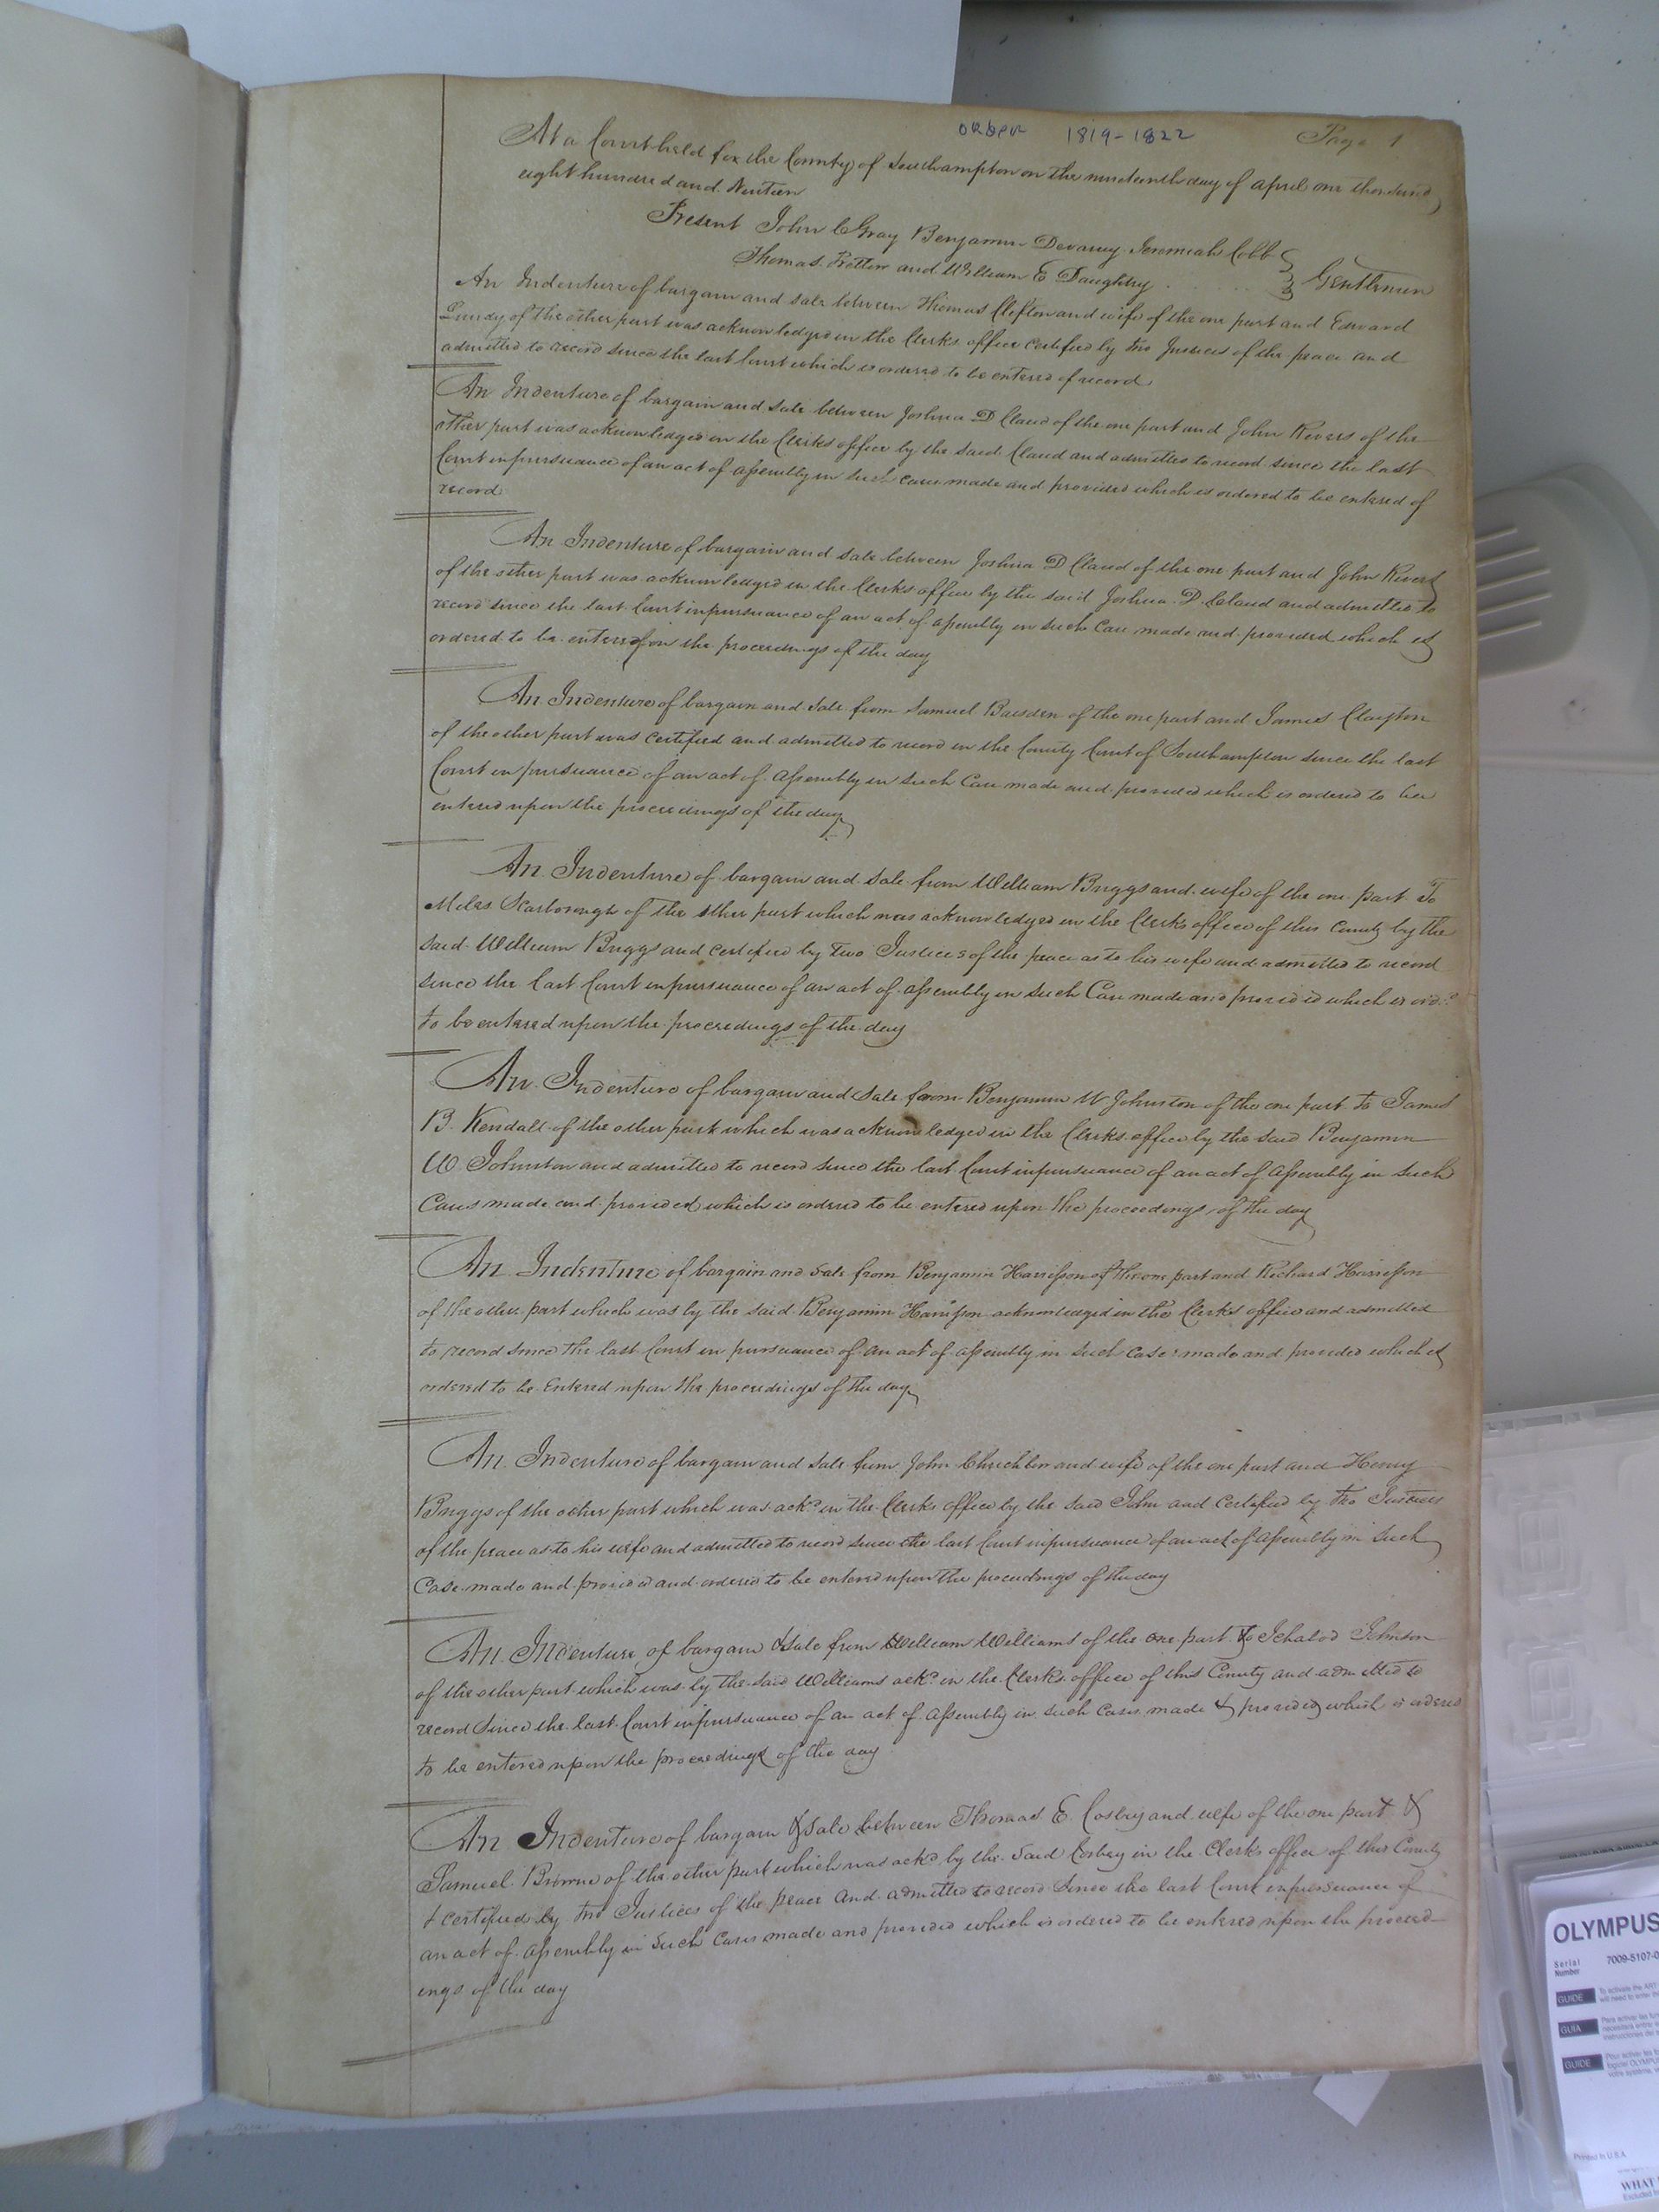 order 1819-1822 Page 1
At a Court held for the County of Southampton on the nineteenth day of april one thousand
eight hundred and Ninteen
Present John C Gray Benjamin Devany Jeremiah Cobb
Thomas Pretlow and William E Daughtry . . . . . . Gentlemen
An Indenture of bargain and sale between Thomas Clifton and wife of the one part and Edward
Lundy of the other part was acknowledged in the Clerks office certified by two Justices of the peace and
admitted to record since the last Court which is ordered to be entered of record
An Indenture of bargain and sale between Joshua D Claud of the one part and John Rivers of the
other part was acknowledged in the Clerks office by the said Claud and admitted to record since the last
Court in pursuance of an act of assembly in such cases made and provided which is ordered to be entered of
record
An Indenture of bargain and sale between Joshua D Claud of the one part and John Rivers
of the other part was acknowledged in the Clerks office by the said Joshua D. Claud and admitted to
record since the last Court in pursuance of an act of assembly in such Case made and provided which is
ordered to be entered on the proceedings of the day
An Indenture of bargain and sale from Samuel Baisden of the one part and James Clayton
of the other part was certified and admitted to record in the County Court of Southampton since the last
Court in pursuance of an act of assembly in such Case made and provided which is ordered to be
entered upon the proceedings of the day
An Indenture of bargain and sale from William Briggs and wife of the one part To
Miles Scarborough of the other part which was acknowledged in the Clerks office of this County by the
said William Briggs and certified by two Justices of the peace as to his wife and admitted to record
since the last Court in pursuance of an act of assembly in such Case made and provided which is ord.d
to be entered upon the proceedings of the day
An Indenture of bargain and sale from Benjamin W Johnston of the one part to James
B. Kendall of the other part which was acknowledged in the Clerks office by the said Benjamin
W. Johnston and admitted to record since the last Court in pursuance of an act of assembly in such
Cases made and provided which is ordered to be entered upon the proceedings of the day
An Indenture of bargain and sale from Benjamin Harrisson of the one part and Richard Harrisson
of the other part which was by the said Benjamin Harrisson acknowledged in the Clerks office and admitted
to record since the last Court in pursuance of an act of assembly in such case made and provided which is
ordered to be Entered upon the proceedings of the day
An Indenture of bargain and sale from John and wife of the one part and Henry
Briggs of the other part which was ack.d in the Clerks office by the said John and certified by two Justices
of the peace as to his wife and admitted to record since the last Court in pursuance of an act of assembly in such
Case made and provided and ordered to be entered upon the proceedings of the day
An Indenture of bargain & sale from William Williams of the one part & to Ichabod Johnson
of the other part which was by the said Williams ack.d in the Clerks office of this County and admitted to
record since the last Court in pursuance of an act of assembly in such Cases made & provided which is ordered
to be entered upon the proceedings of the day
An Indenture of bargain & sale between Thomas E. Cosby and wife of the one part &
Samuel Browne of the other part which was ack.d by the said Cosby in the Clerks office of this County
& certified by two Justices of the peace and admitted to record since the last Court in pursuance of
an act of assembly in such Cases made and provided which is ordered to be entered upon the proceed-
ings of the day
OLYMPUS
Serial
Number
7009-5107-0
GUIDE
GUIA
GUIDE
Printed in U.S.A.
WHAT